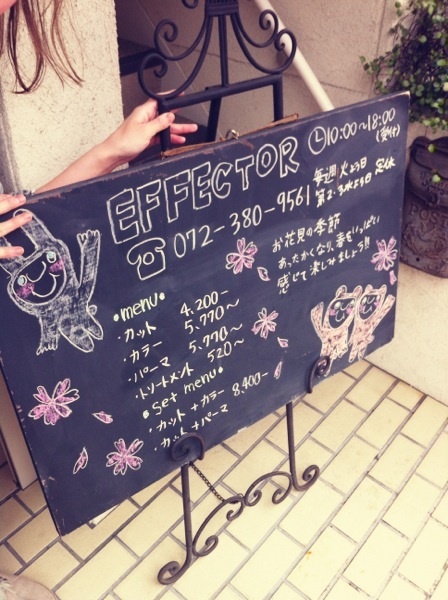 EFFECTOR
10:00~18:00
(受付)
072-380-9561
毎週火よう日
第2・3水よう日 定休
お花見の季節
あったかくなり、春をいっぱい
感じて楽しみましょう!!
•menu•
・カット 4,200-
・カラー 5,770~
・パーマ 5,770~
・トリートメント 520~
•set menu•
・カット+カラー 8,400-
・カット+パーマ